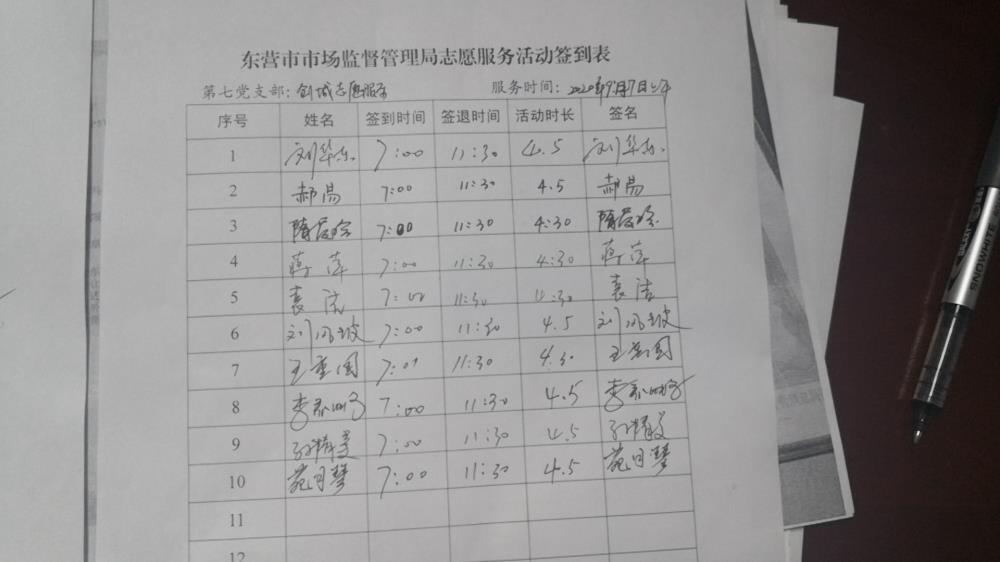 东营市市场监督管理局志愿服务活动签到表
第七党支部：创城志愿服务 服务时间：2020年9月17日上午
序号 姓名 签到时间 签退时间 活动时长 签名
1 刘华东 7:00 11:30 4.5 刘华东
2 郝昜 7:00 11:30 4.5 郝昜
3 隋 7:00 11:30 4:30 隋
4 蒋萍 7:00 11:30 4:30 蒋萍
5 袁洁 7:00 11:30 4:30 袁洁
6 刘风坡 7:00 11:30 4.5 刘风坡
7 王 国 7:01 11:30 4.30 王 国
8 李 7:00 11:30 4.5 李
9 孙精美 7:00 11:30 4.5 孙精美
10 苑月梦 7:00 11:30 4.5 苑月梦
11
12
SNOWHITE